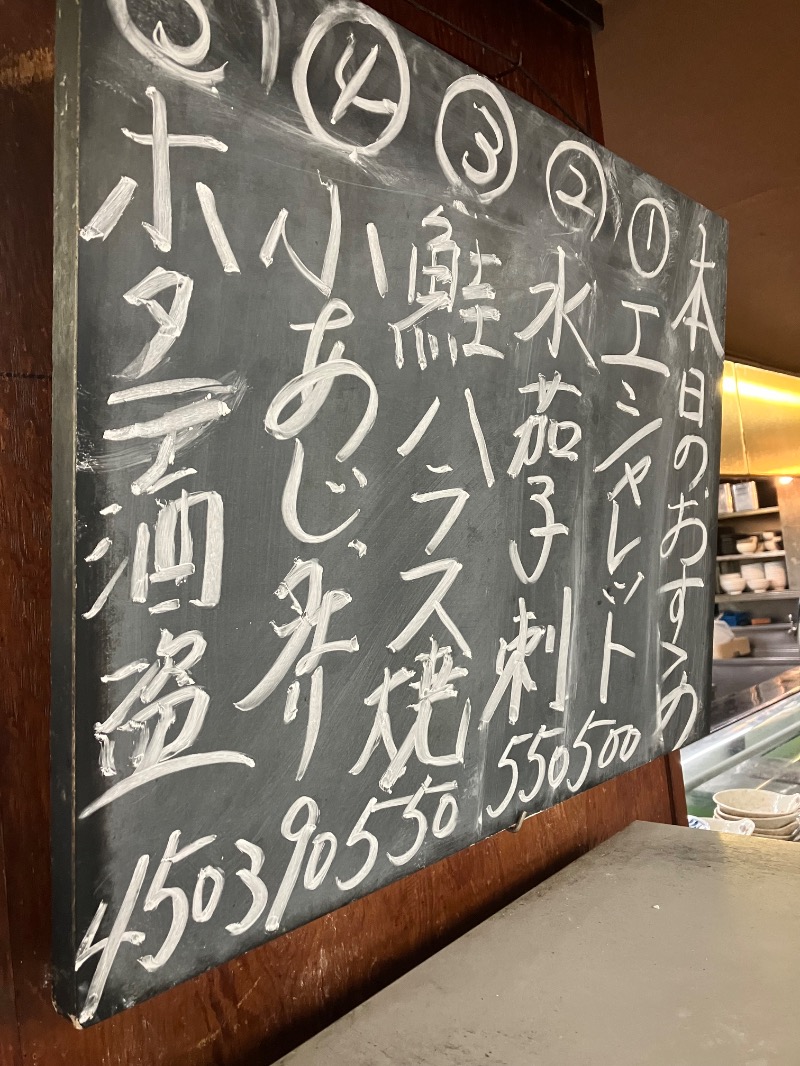 本日のおすすめ
① エシャレット 500
② 水茄子刺 550
③ 鮭ハラス焼 550
④ 小あじ 390
⑤ ホタテ酒盗 450